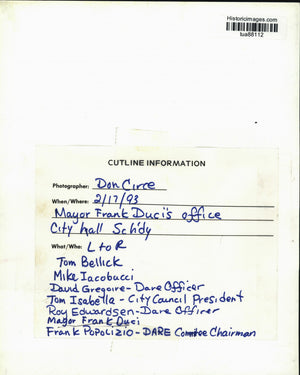 Historicimages.com
tua88112
CUTLINE INFORMATION
Photographer: Don Circe
When/Where: 2/17/93
Mayor Frank Duci's office
City hall Sch'dy
What/Who: L to R
Tom Bellick
Mike Iacobucci
David Gregoire- Dare Officer
Tom Isabella - City Council President
Roy Edwardsen- Dare Officer
Mayor Frank Duci
Frank POPOLIZIO- DARE Comtee Chairman